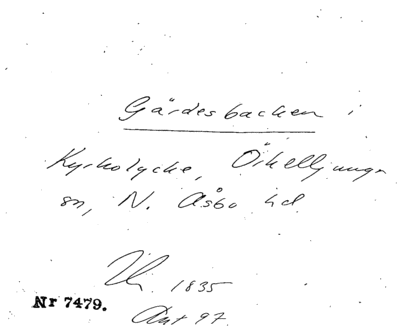 Gårdesbacken i
Kyrkolycke, Örkelljunga
sn, N. Åsbo hd
1835
Nr 7479.
Ant 97